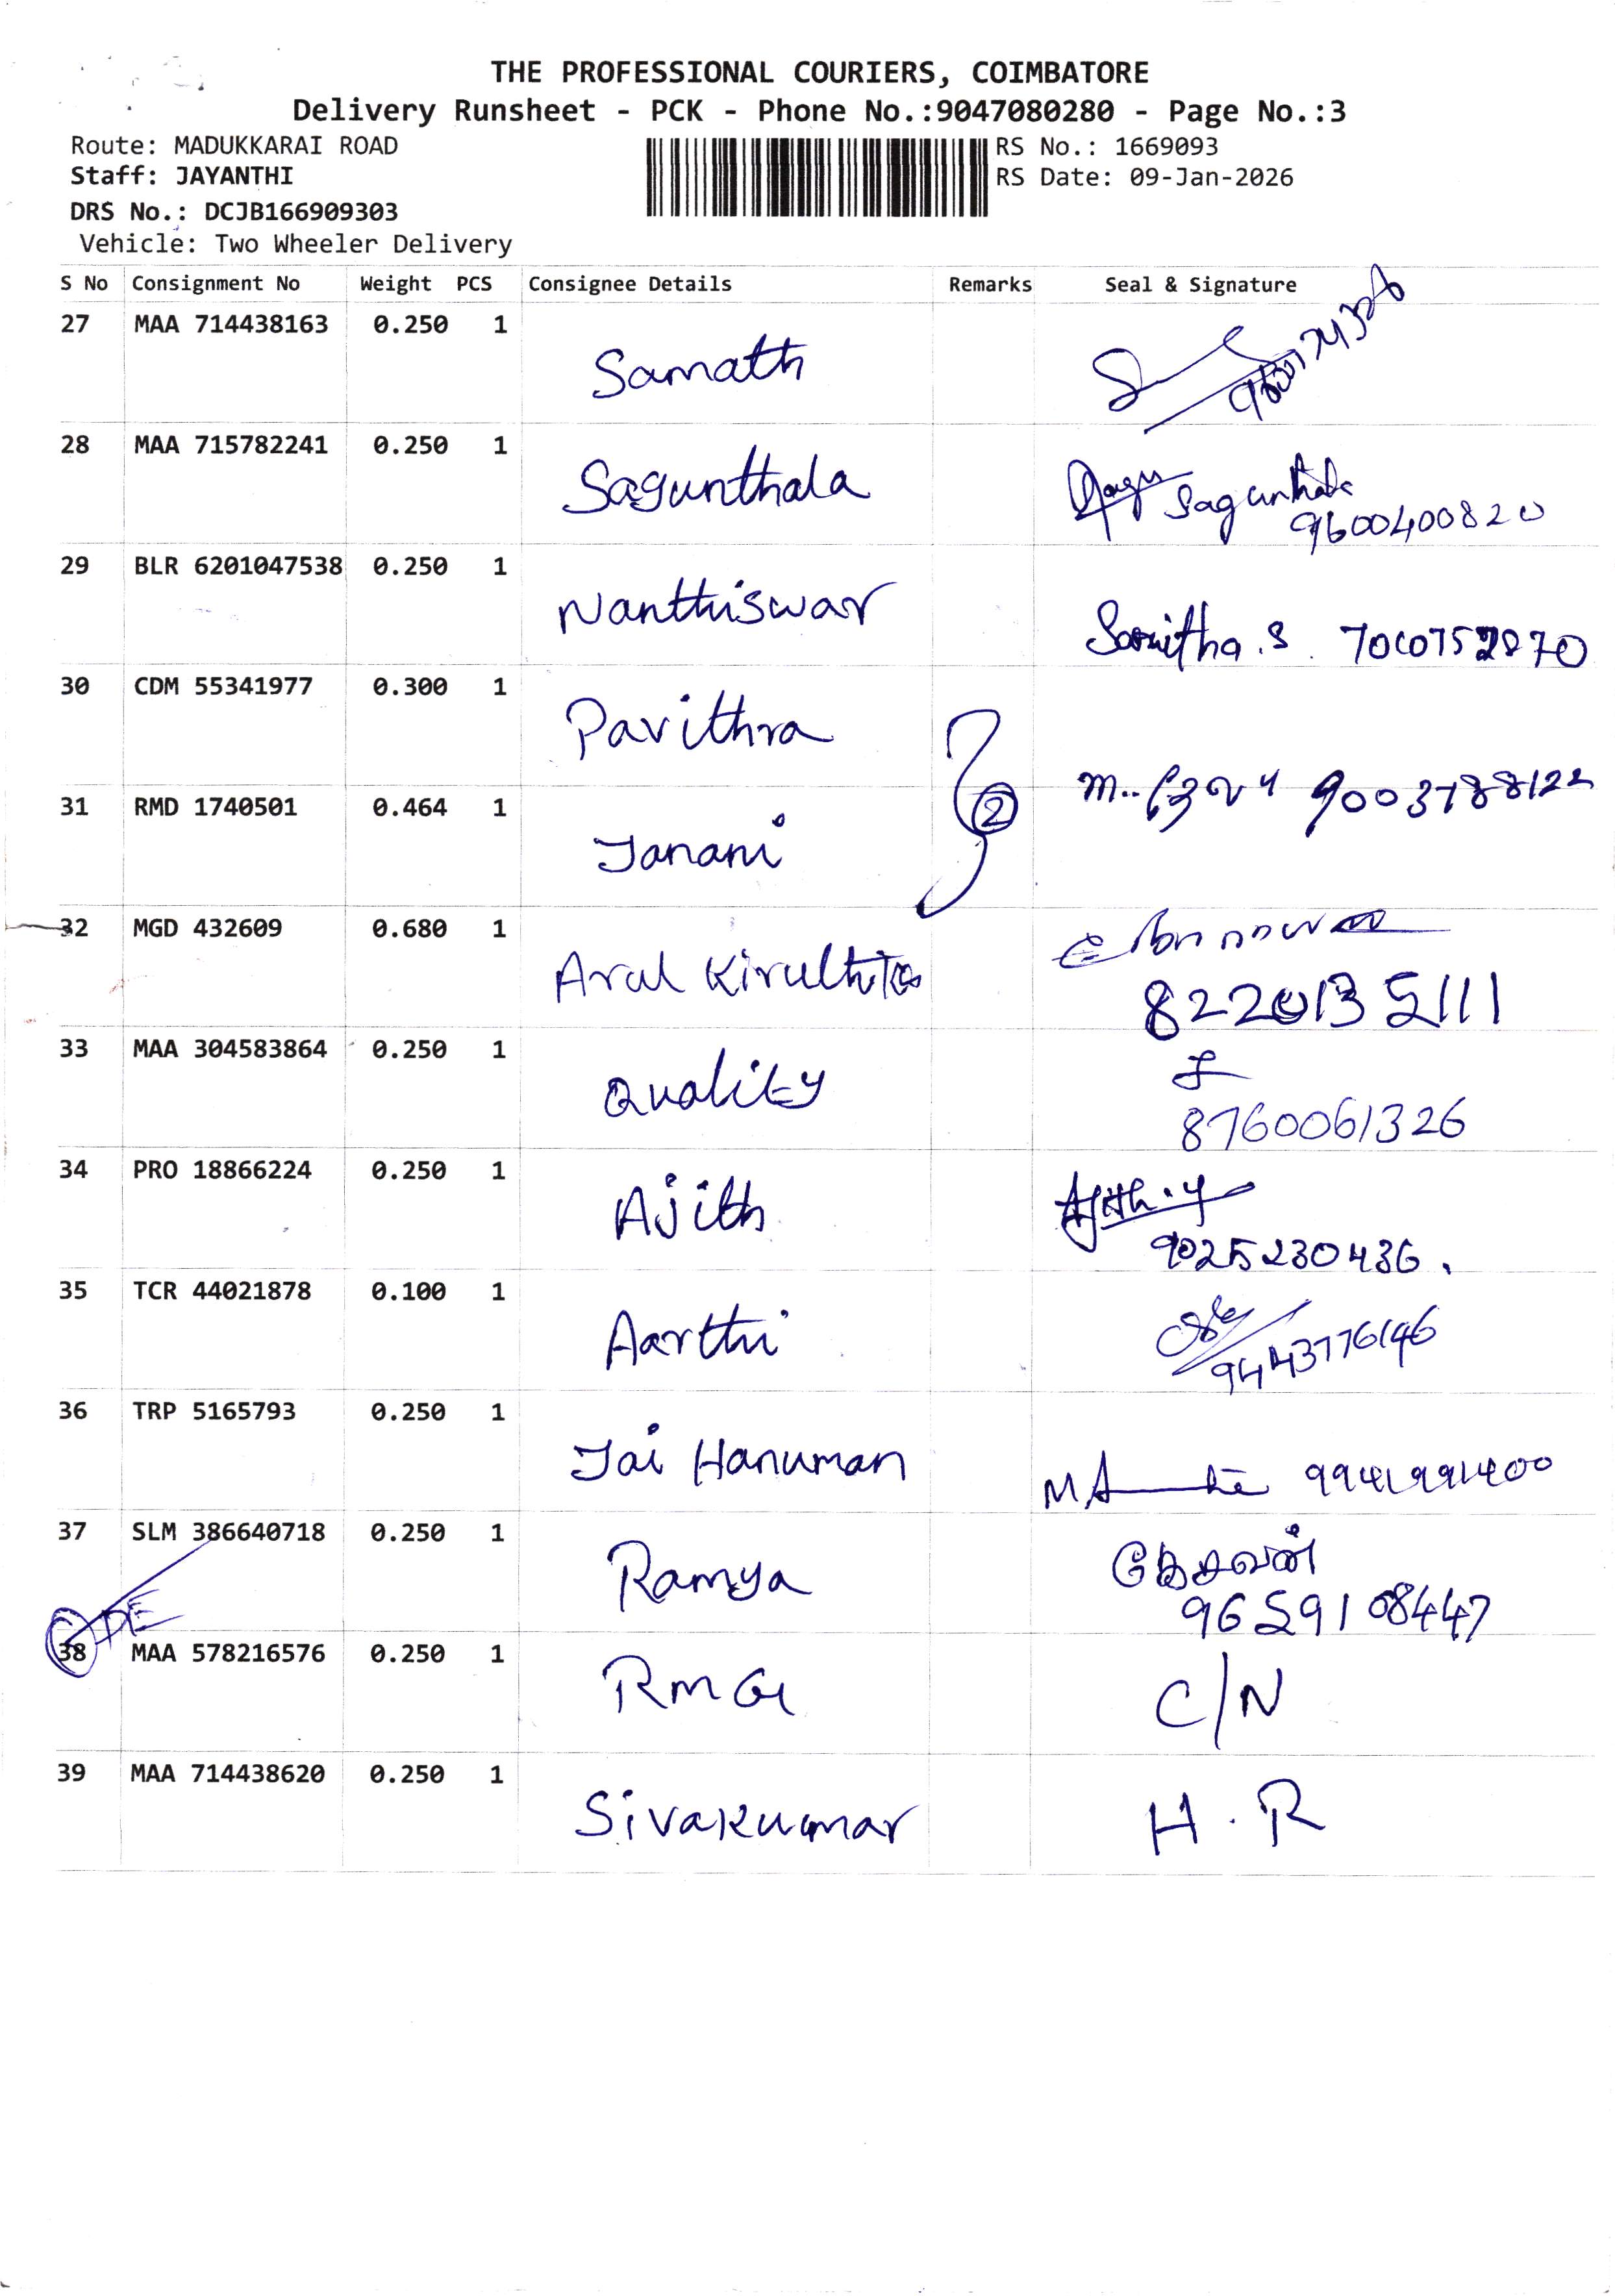 THE PROFESSIONAL COURIERS, COIMBATORE
Delivery Runsheet - PCK - Phone No.:9047080280 - Page No.:3
Route: MADUKKARAI ROAD
RS No.: 1669093
Staff: JAYANTHI
RS Date: 09-Jan-2026
DRS No.: DCJB166909303
Vehicle: Two Wheeler Delivery
S No Consignment No Weight PCS Consignee Details Remarks Seal & Signature
27 MAA 714438163 0.250 1
Samath
28 MAA 715782241 0.250 1
Sagunthala Sagunthala
9600400820
29 BLR 6201047538 0.250 1
Nanthiswar
30 CDM 55341977 0.300 1
Pavithra
31 RMD 1740501 0.464 1
Janani 2 9003788122
32 MGD 432609 0.680 1
Arul
8220135111
33 MAA 304583864 0.250 1
Quality
8760061326
34 PRO 18866224 0.250 1
Ajith Ajith.y
9025230436.
35 TCR 44021878 0.100 1
Aarthi
9443776146
36 TRP 5165793 0.250 1
Jai Hanuman 9941991400
37 SLM 386640718 0.250 1
Ramya
9659108447
ODE
38 MAA 578216576 0.250 1
RMG C/N
39 MAA 714438620 0.250 1
Sivakumar H.R